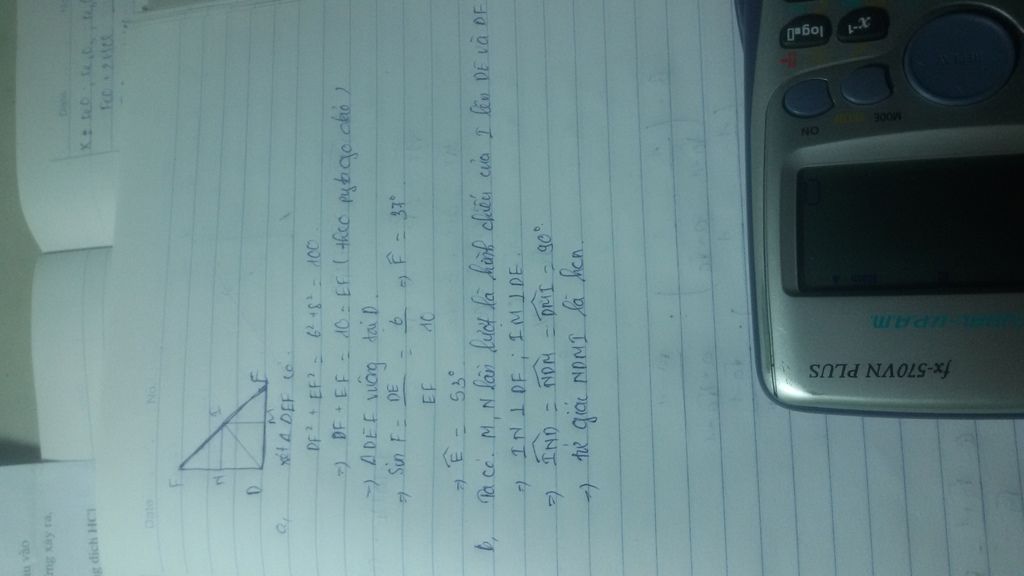 Date No.
F
N
I
D
M
E
a, xét Δ DEF có.
DF² + EF² = 6² + 8² = 100
=> DF + EF = 10 = EF (theo pytago đảo)
=> Δ DEF vuông tại D.
=> Sin F = DE/EF = 6/10 => F̂ = 37°
=> Ê = 53°
b, Ta có. M, N lần lượt là hình chiếu của I lên DE và DF
=> IN ⊥ DF ; IM ⊥ DE.
=> IND = NDM = DMI = 90°
=> tứ giác NDMI là hcn.
ng xảy ra.
ng dịch HCl
fx-570VN PLUS
ON
MODE
REPLAY
x⁻¹
log